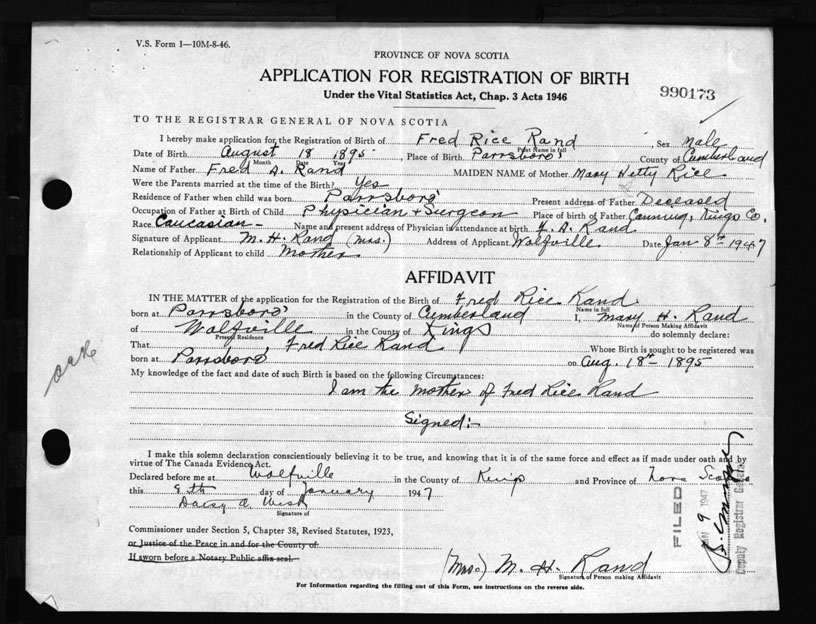 V.S. Form 1—10M-8-46.
PROVINCE OF NOVA SCOTIA
APPLICATION FOR REGISTRATION OF BIRTH
Under the Vital Statistics Act, Chap. 3 Acts 1946
990173
TO THE REGISTRAR GENERAL OF NOVA SCOTIA
I hereby make application for the Registration of Birth of Fred Rice Rand Sex Male
Print Name in full
Date of Birth August 18 1895, Place of Birth Parrsboro County of Cumberland
Month Date Year
Name of Father Fred A. Rand MAIDEN NAME of Mother Mary Hetty Rice
Were the Parents married at the time of the Birth? Yes
Residence of Father when child was born Parrsboro Present address of Father Deceased
Occupation of Father at Birth of Child Physician + Surgeon Place of birth of Father Canning, Kings Co.
Race Caucasian - Name and present address of Physician in attendance at birth F. A. Rand
Signature of Applicant M. H. Rand (Mrs.) Address of Applicant Wolfville Date Jan 8th 1947
Relationship of Applicant to child Mother
AFFIDAVIT
IN THE MATTER of the application for the Registration of the Birth of Fred Rice Rand
Name in full
born at Parrsboro in the County of Cumberland I, Mary H. Rand
Name of Person Making Affidavit
of Wolfville in the County of Kings do solemnly declare:
Present Residence
That Fred Rice Rand Whose Birth is sought to be registered was
born at Parrsboro on Aug. 18th - 1895
My knowledge of the fact and date of such Birth is based on the following Circumstances:
I am the mother of Fred Rice Rand
Signed:-
I make this solemn declaration conscientiously believing it to be true, and knowing that it is of the same force and effect as if made under oath and by
virtue of The Canada Evidence Act.
Declared before me at Wolfville in the County of Kings and Province of Nova Scotia
this 8th day of January 1947
Daisy A. West
Signature of
Commissioner under Section 5, Chapter 38, Revised Statutes, 1923,
or Justice of the Peace in and for the County of:
If sworn before a Notary Public affix seal.
FILED
9 1947
Deputy Registrar General
(Mrs.) M. H. Rand
Signature of Person making Affidavit
For Information regarding the filling out of this Form, see instructions on the reverse side.